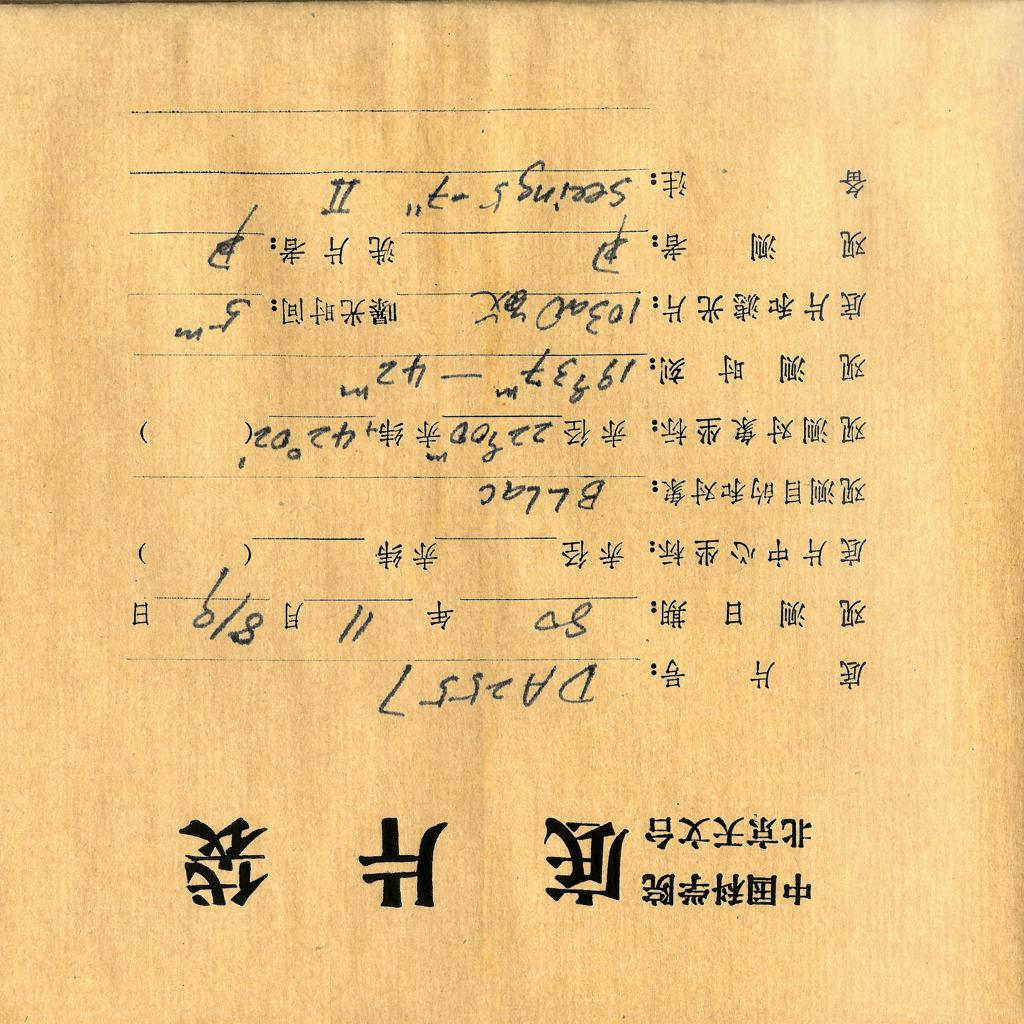 中国科学院
北京天文台 底片袋
底片号: DA2557
观测日期: 80 年 11 月 8/9 日
底片中心坐标: 赤径 赤纬 ( )
观测目的和对象: BLLac
观测对象坐标: 赤径 22h00m 赤纬+42°02′ ( )
观测时刻: 19h37m — 42m
底片和滤光片: 103aO 曝光时间: 5m
观测者: 洗片者:
备注: Seeing 5-7" II